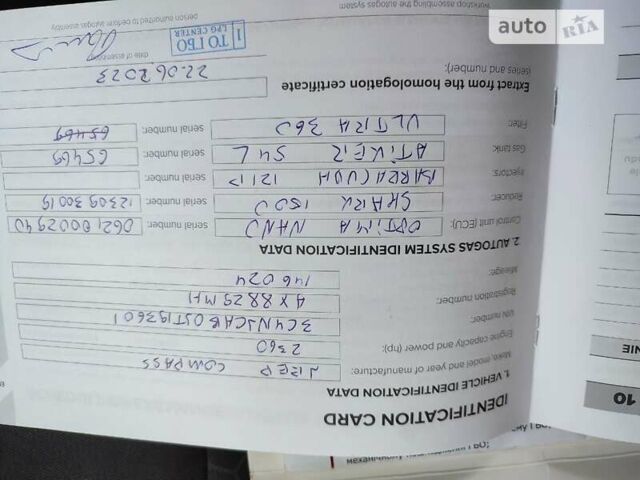 auto RIA
10
NIE
IDENTIFICATION CARD
1. VEHICLE IDENTIFICATION DATA
Make, model and year of manufacture: JEEP COMPASS
Engine capacity and power (hp): 2360
VIN number:
Registration number: AX8829MH
Mileage: 146024
2. AUTOGAS SYSTEM IDENTIFICATION DATA
Control unit (ECU): OPTIMA NANO serial number:
Reducer: SHARK 1500 serial number:
Injectors: BARRACUDA serial number:
Gas tank: ATIKER 54L serial number: 65469
Filter: ULTRA 360 serial number: 65469
Extract from the homologation certificate
(series and number):
22.06.2023
date of assembly
ТО ГБО
LPG CENTER
1
workshop assembling the autogas system
person authorised to perform autogas assembly